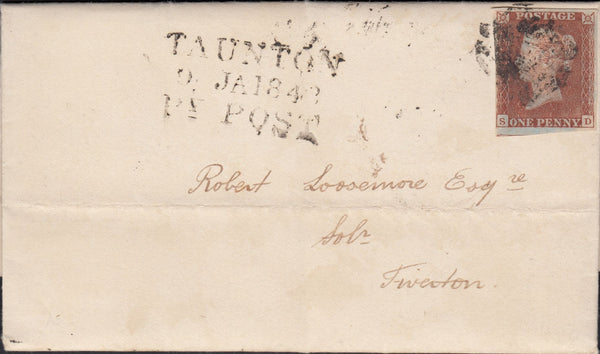 TAUNTON
JA 1842
Py POST
POSTAGE
S ONE PENNY D
Robert Loosemore Esqre
Solr
Tiverton.